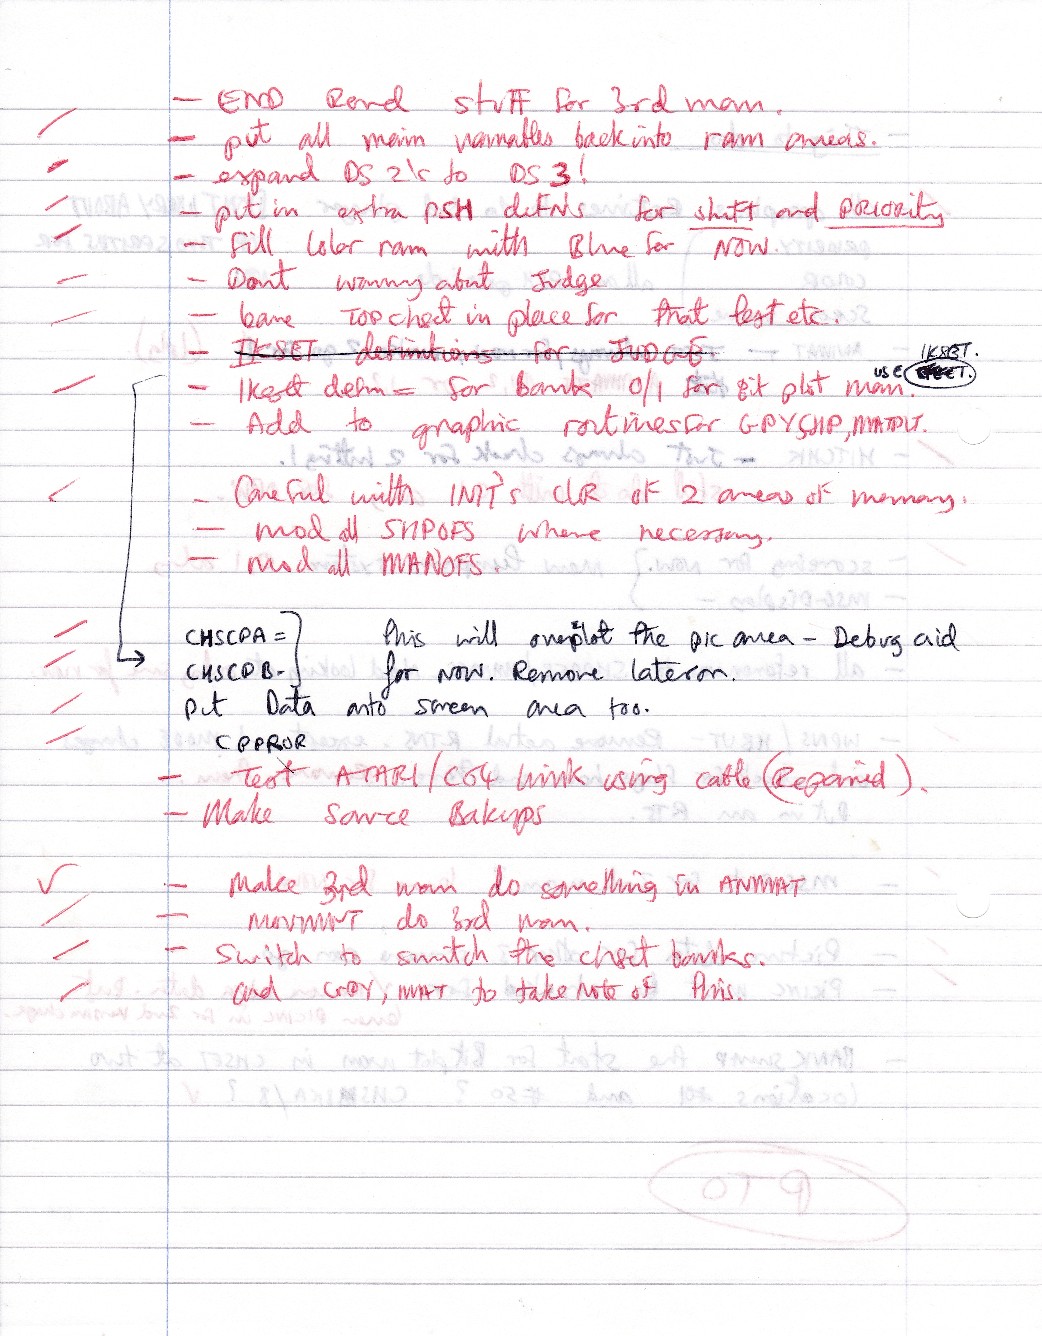 - END Round stuff for 3rd man.
- put all main variables back into ram areas.
- expand DS 2's to DS 3!
- put in extra PSH defns for shift and PRIORITY
- Fill Color ram with Blue for NOW.
- Dont worry about Judge
- have TOP chset in place for that test etc.
- IKSET definitions for JUDGE
IKSET.
- IKset defn = for banks 0/1 for Bit plot man. USE
- Add to graphic routines for GPYSHP, MATPUT.
- Careful with INIT's CLR of 2 areas of memory.
- mod all SHPOFS where necessary.
- mod all MANOFS.
CHSCPA = this will overplot the pic area - Debug aid
CHSCPB - for NOW. Remove lateron.
put Data onto screen area too.
CPPROR
- Test ATARI/C64 Link using cable (Repaired).
- Make Source Bakups
- Make 3rd man do something in ANIMAT
- MOVMNT do 3rd man.
- Switch to switch the chset banks.
and to take Note of this.
PTO